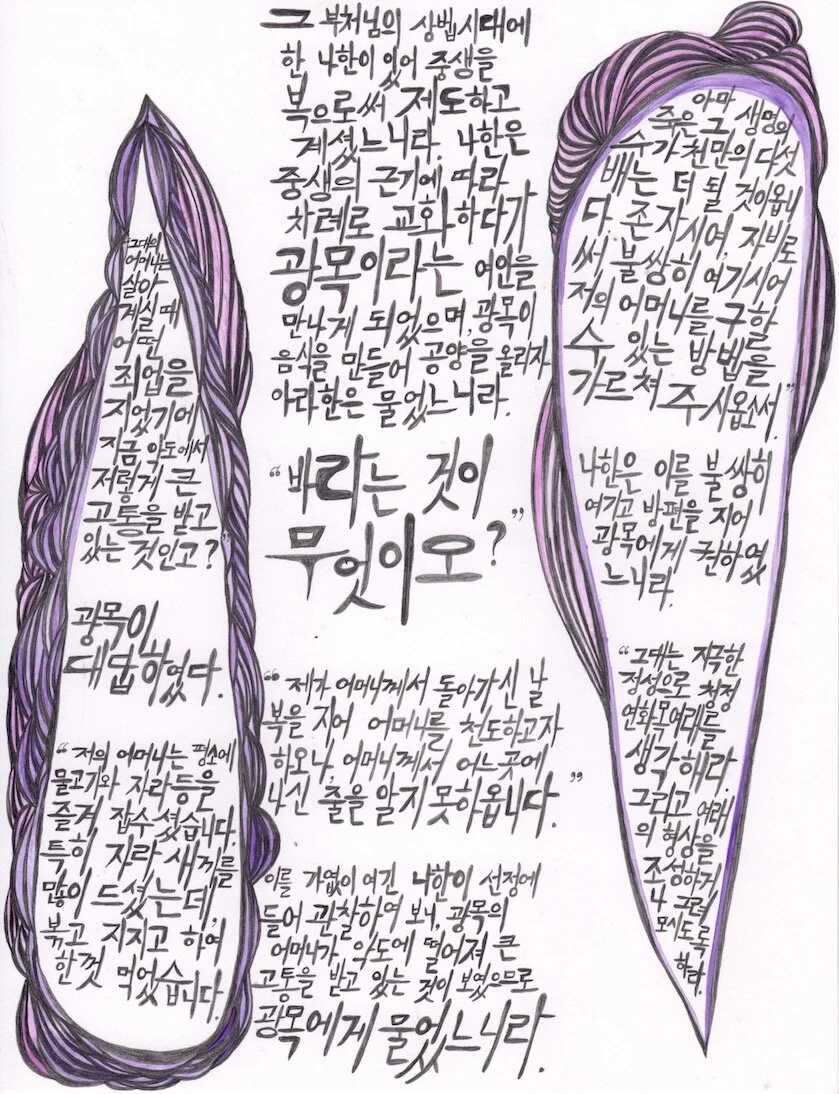 그 부처님의 상법시대에
한 나한이 있어 중생을
복으로써 제도하고
계셨느니라. 나한은
중생의 근기에 따라
차례로 교화하다가
광목이라는 여인을
만나게 되었으며, 광목이
음식을 만들어 공양을 올리자
아라한은 물었느니라.
“바라는 것이
무엇이오?”
“제가 어머니께서 돌아가신 날
복을 지어 어머니를 천도하고자
하오나, 어머니께서 어느 곳에
나신 줄을 알지 못하옵니다.”
이를 가엾이 여긴 나한이 선정에
들어 관찰하여 보니, 광목의
어머니가 악도에 떨어져 큰
고통을 받고 있는 것이 보였으므로
광목에게 물었느니라.
“그대의
어머니는
살아
계실 때
어떤
죄업을
지었기에
지금 악도에서
저렇게 큰
고통을 받고
있는 것인고?”
광목이
대답하였다.
“저의 어머니는 평소에
물고기와 자라 등을
즐겨 잡수셨습니다.
특히 자라 새끼를
많이 드셨는데,
볶고 지지고 하여
한껏 먹었습니다.
아마
죽은 그 생명의
수가 천만의 다섯
배는 더 될 것이옵니
다. 존자시여, 자비로
써 불쌍히 여기시어
저의 어머니를 구할
수 있는 방법을
가르쳐 주시옵소서.”
나한은 이를 불쌍히
여기고 방편을 지어
광목에게 권하였
느니라.
“그대는 지극한
정성으로 청정
연화목여래를
생각해라.
그리고 여래
의 형상을
조성하거
나 그려
모시도록
하라.